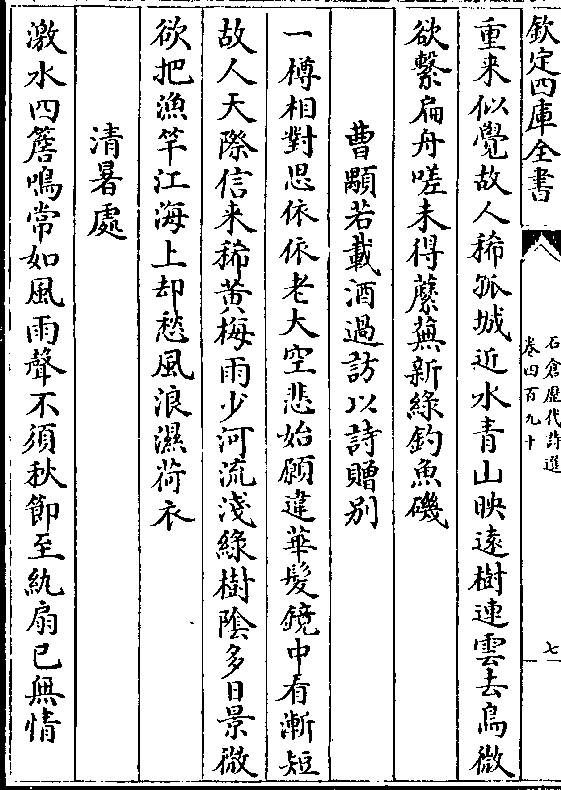 欽定四庫全書
石倉歷代詩選
卷四百九十
七
重来似覺故人稀孤城近水青山映逺樹連雲去鳥微
欲繫扁舟嗟未得蘪蕪新緑釣魚磯
曹顒若載酒過訪以詩贈别
一樽相對思依依老大空悲始願違華髪鏡中看漸短
故人天際信来稀黄梅雨少河流淺緑樹陰多日景微
欲把漁竿江海上却愁風浪濕荷衣
清暑處
激水四簷鳴常如風雨聲不須秋節至紈扇已無情